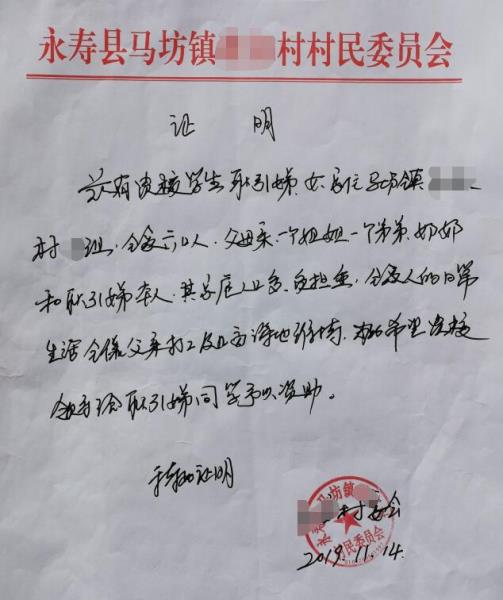 永寿县马坊镇村村民委员会
证 明
兹有贵校学生耿引娣,女,家住马坊镇
村 组,全家六口人,父母亲、一个姐姐一个弟弟、奶奶
和耿引娣本人,其家庭人口多,负担重,全家人的日常
生活全依父亲打工及几亩薄地维持,希望贵校
领导给耿引娣同学予以资助。
特此证明
村委会
2019.11.14.
马坊镇
村民委员会